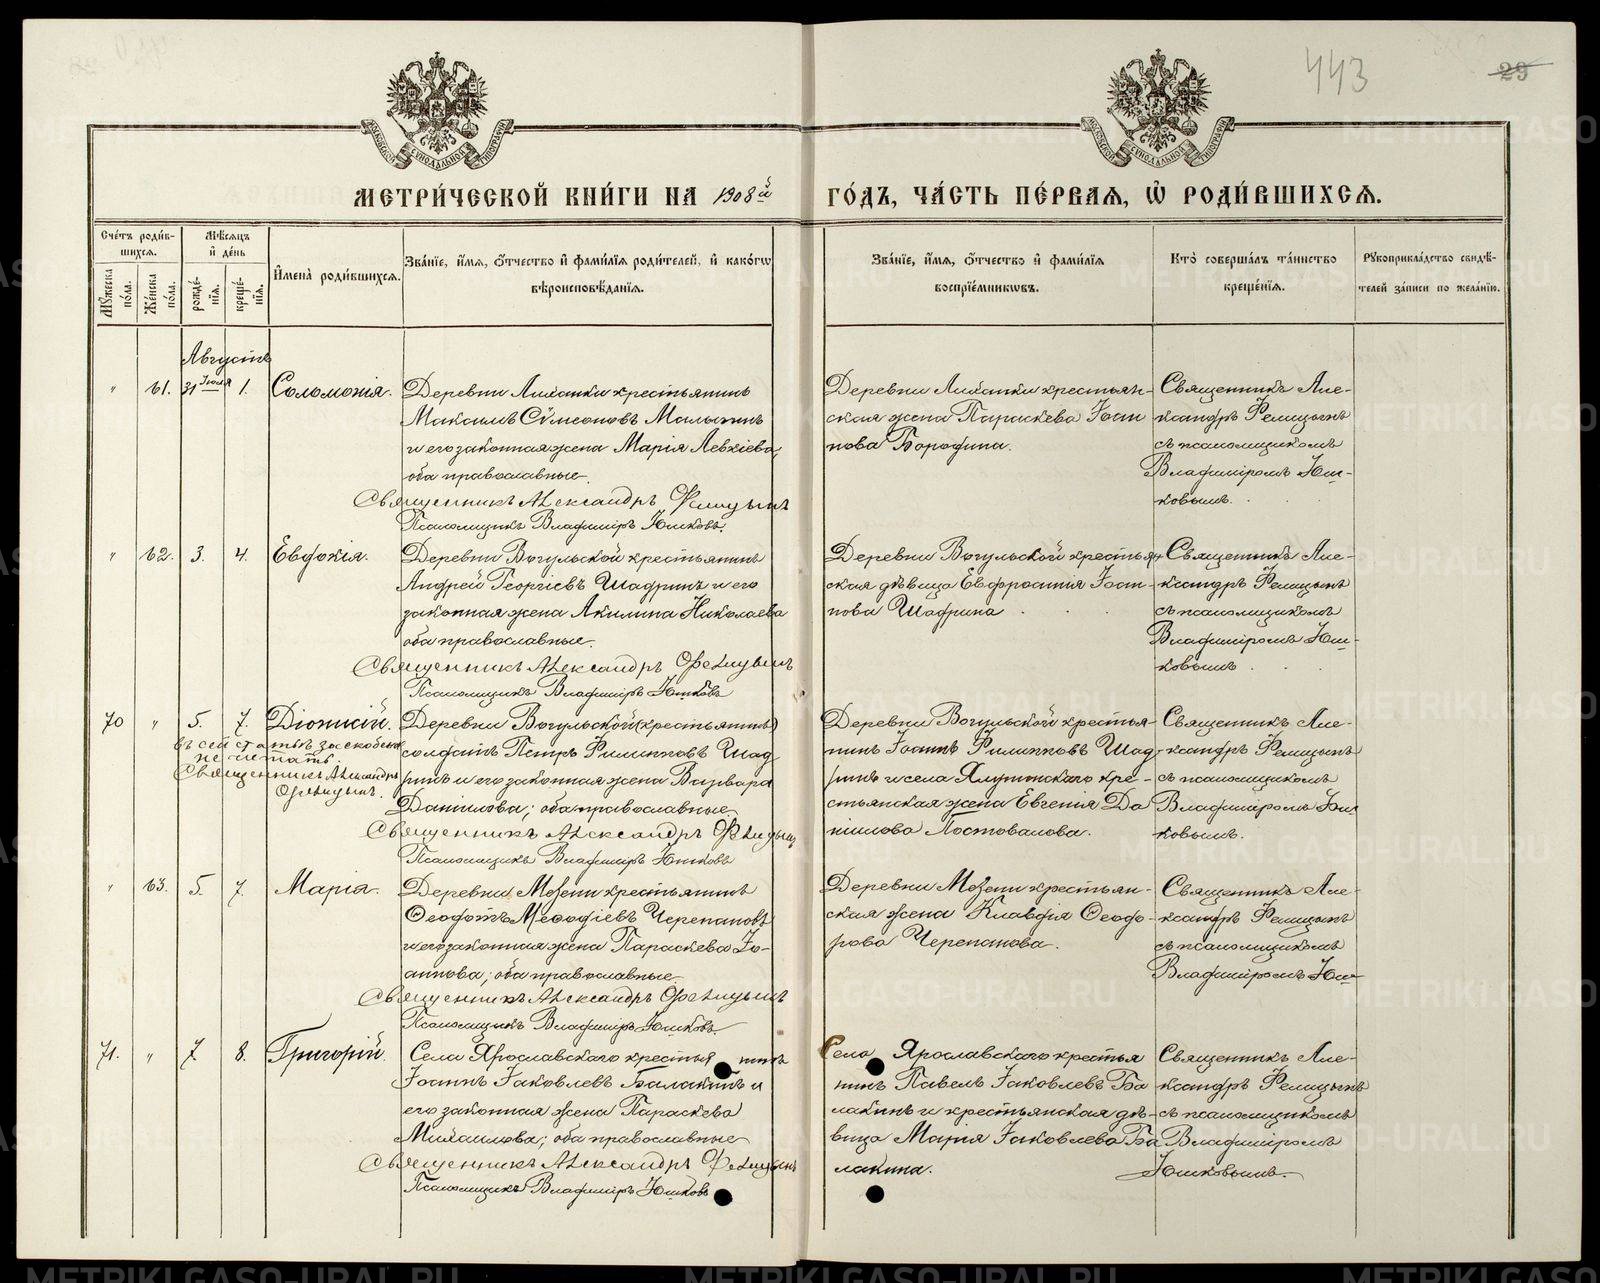 443
29
МОСКОВСКОЙ СѴНОДАЛЬНОЙ ТИПОГРАФІИ
МОСКОВСКОЙ СѴНОДАЛЬНОЙ ТИПОГРАФІИ
МЕТРИ́ЧЕСКОЙ КНИ́ГИ НА 1908й ГО́ДЪ, ЧА́СТЬ ПЕ́РВАЯ, Ѽ РОДИ́ВШИХСЯ.
Сче́тъ роди́в-
шихся.
Мꙋ́жеска по́ла.
Же́нска по́ла.
Мѣ́сяцъ и҆ де́нь
рожде́-нїя.
креще́-нїя.
И҆мена̀ роди́вшихся.
Зва́нїе, и҆́мя, ѻ҆́тчество и҆ фами́лїя роди́телей, и҆ како́гѡ
вѣроисповѣ́данїя.
Зва́нїе, и҆́мя, ѻ҆́тчество и҆ фами́лїя
воспрїе́мниковъ.
Кто̀ соверша́лъ та́инство
креще́нїя.
Рꙋкоприкла́дство свидѣ́-
телей за́писи по жела́нїю.
Августъ
" 61. 31 Іюля 1. Соломонія.
Деревни Лиханки крестьянинъ
Максимъ Сѵмеоновъ Малыгинъ
и его законная жена Марія Левкіева,
оба православные.
Священникъ Александръ Фелицынъ
Псаломщикъ Владиміръ Юшковъ.
Деревни Лиханки крестьян-
ская жена Параскева Іоан
нова Бородина.
Священникъ Але-
ксандръ Фелицынъ
съ псаломщикомъ
Владиміромъ Юш-
ковымъ.
" 62. 3. 4. Евдокія.
Деревни Вогульской крестьянинъ
Андрей Георгіевъ Шадринъ и его
законная жена Акилина Николаева
оба православные.
Священникъ Александръ Фелицынъ
Псаломщикъ Владиміръ Юшковъ
Деревни Вогульской крестьян-
ская дѣвица Евфросинія Іоан-
нова Шадрина
Священникъ Але-
ксандръ Фелицынъ
съ псаломщикомъ
Владиміромъ Юш-
ковымъ
70 " 5. 7. Діонисій.
въ сей статьѣ заскобленное
не читать.
Священникъ Александръ
Фелицынъ.
Деревни Вогульской (крестьянинъ)
солдатъ Петръ Филипповъ Шад
ринъ и его законная жена Варвара
Даниилова; оба православные
Священникъ Александръ Фелицынъ
Псаломщикъ Владиміръ Юшковъ
Деревни Вогульской крестья-
нинъ Іоаннъ Филипповъ Шад-
ринъ и села Ялунинскаго кре-
стьянская жена Евгенія Да
ніилова Постовалова.
Священникъ Але-
ксандръ Фелицынъ
съ псаломщикомъ
Владиміромъ Юш
ковымъ.
" 63. 5. 7. Марія.
Деревни Мезени крестьянинъ
Ѳеодотъ Меѳодіевъ Черепановъ
и его законная жена Параскева Іо-
аннова; оба православные
Священникъ Александръ Фелицынъ
Псаломщикъ Владиміръ Юшковъ
Деревни Мезени крестьян-
ская жена Клавдія Ѳеодо-
рова Черепанова.
Священникъ Але-
ксандръ Фелицынъ
съ псаломщикомъ
Владиміромъ Юш-
71. " 7. 8. Григорій.
Села Ярославскаго крестьянинъ
Іоаннъ Іаковлевъ Балакинъ и
его законная жена Параскева
Михаилова; оба православные
Священникъ Александръ Фелицынъ
Псаломщикъ Владиміръ Юшковъ
Села Ярославскаго крестья
нинъ Павелъ Іаковлевъ Ба
лакинъ и крестьянская дѣ-
вица Марія Іаковлева Ба
лакина.
Священникъ Але-
ксандръ Фелицынъ
съ псаломщикомъ
Владиміромъ
Юшковымъ.
METRIKI.GASO-URAL.RU